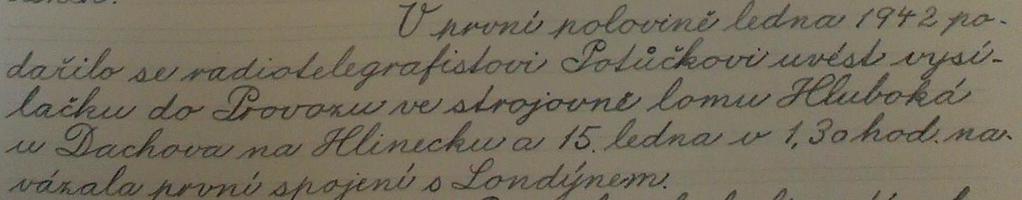 V první polovině ledna 1942 po-
dařilo se radiotelegrafistovi Potůčkovi uvést vysí-
lačku do Provozu ve strojovně lomu Hluboká
u Dachova na Hlinecku a 15. ledna v 1,30 hod. na-
vázala první spojení s Londýnem.